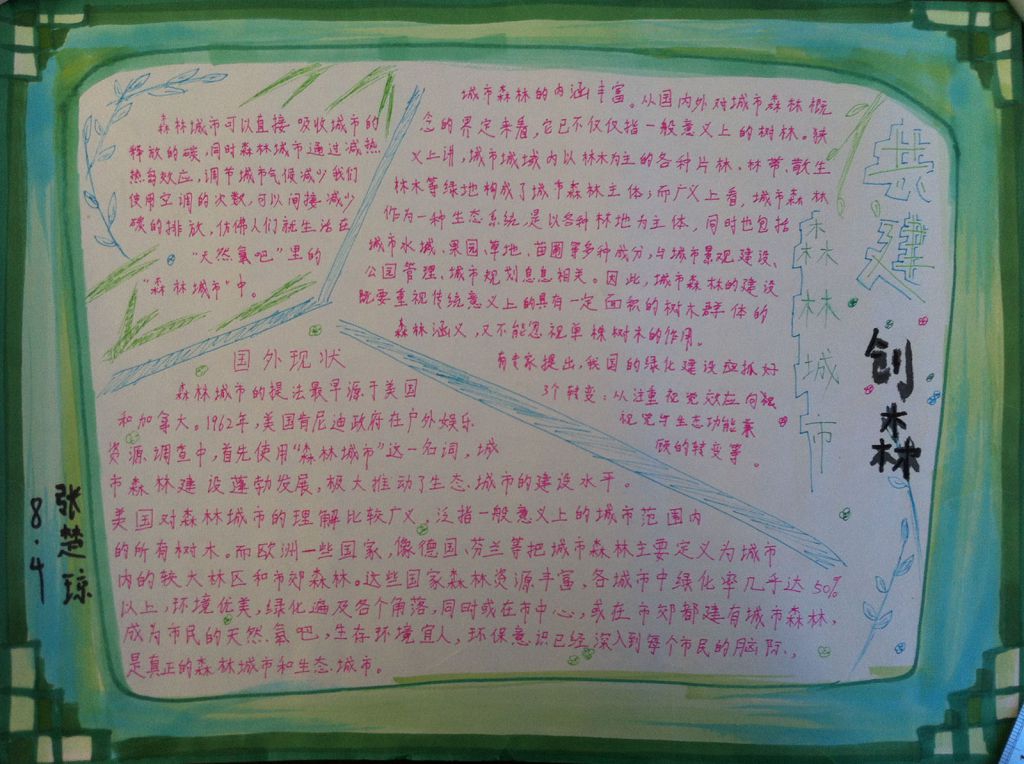 森林城市可以直接吸收城市的
释放的碳,同时森林城市通过减热
热岛效应,调节城市气候减少我们
使用空调的次数,可以间接减少
碳的排放,仿佛人们就生活在
“天然氧吧”里的
“森林城市”中。
城市森林的内涵丰富。从国内外对城市森林概
念的界定来看,它已不仅仅指一般意义上的树林。狭
义上讲,城市城域内以林木为主的各种片林、林带、散生
林木等绿地构成了城市森林主体;而广义上看,城市森林
作为一种生态系统,是以各种林地为主体,同时也包括
城市水域、果园、草地、苗圃等多种成分,与城市景观建设、
公园管理、城市规划息息相关。因此,城市森林的建设
既要重视传统意义上的具有一定面积的树木群体的
森林涵义,又不能忽视单株树木的作用。
有专家提出,我国的绿化建设应抓好
3个转变:从注重视觉效应向
视觉与生态功能兼
顾的转变等。
国外现状
森林城市的提法最早源于美国
和加拿大。1962年,美国肯尼迪政府在户外娱乐
资源调查中,首先使用“森林城市”这一名词,城
市森林建设蓬勃发展,极大推动了生态城市的建设水平。
美国对森林城市的理解比较广义,泛指一般意义上的城市范围内
的所有树木。而欧洲一些国家,像德国、芬兰等把城市森林主要定义为城市
内的较大林区和市郊森林。这些国家森林资源丰富,各城市中绿化率几乎达50%
以上,环境优美,绿化遍及各个角落,同时或在市中心,或在市郊都建有城市森林,
成为市民的天然氧吧,生存环境宜人,环保意识已经深入到每个市民的脑际,
是真正的森林城市和生态城市。
共建
森林城市
创森林
8.4
张慧琼